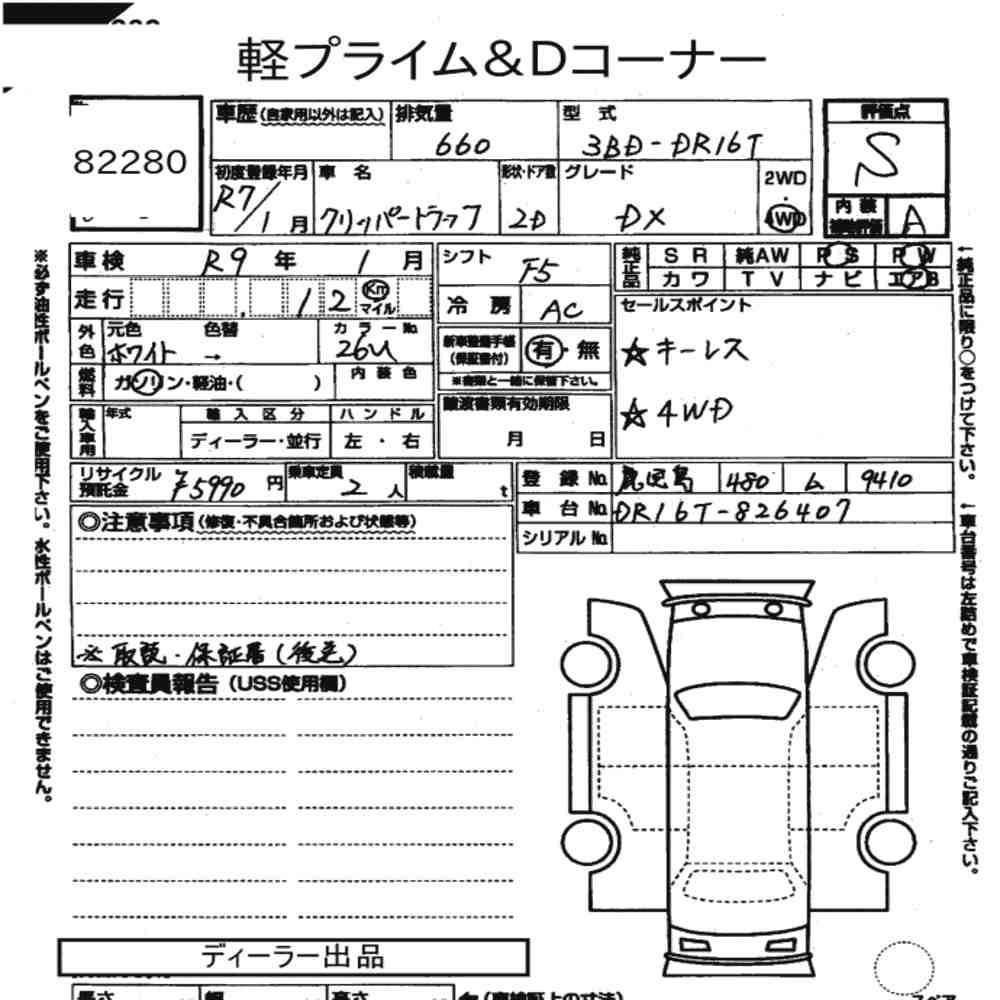 軽プライム&Dコーナー
82280
車歴(自家用以外は記入) 排気量 型 式 評価点
660 3BD-DR16T S
初度登録年月 車 名 形状・ドア数 グレード 2WD
R7/1月 クリッパートラック 2D DX 4WD
内 装 補助評価 A
車検 R9 年 1 月 シフト F5
純正品 SR 純AW PS PW
カワ TV ナビ エアB
走行 12 Km マイル 冷 房 AC
セールスポイント
外色 元色 色替 カラーNo.
ホワイト → 26U
新車整備手帳(保証書付) 有・無
※書類と一緒に保管下さい。
☆キーレス
☆4WD
燃料 ガソリン・軽油・( ) 内 装 色
輸入車用 年式 輸 入 区 分 ハ ン ド ル
ディーラー・並行 左 ・ 右
譲渡書類有効期限
月 日
リサイクル預託金 ¥5990 円 乗車定員 2 人 積載量 t
登 録 No. 鹿児島 480 ム 9410
車 台 No. DR16T-826407
シリアル No.
◎注意事項(修復・不具合箇所および状態等)
※ 取説・保証書(後送)
◎検査員報告(USS使用欄)
ディーラー出品
長さ 幅 高さ ←(車検証上の寸法)
スペア
※必ず油性ボールペンをご使用下さい。水性ボールペンはご使用できません。
←純正品に限り○をつけて下さい。
←車台番号は左詰めで車検証記載の通りご記入下さい。